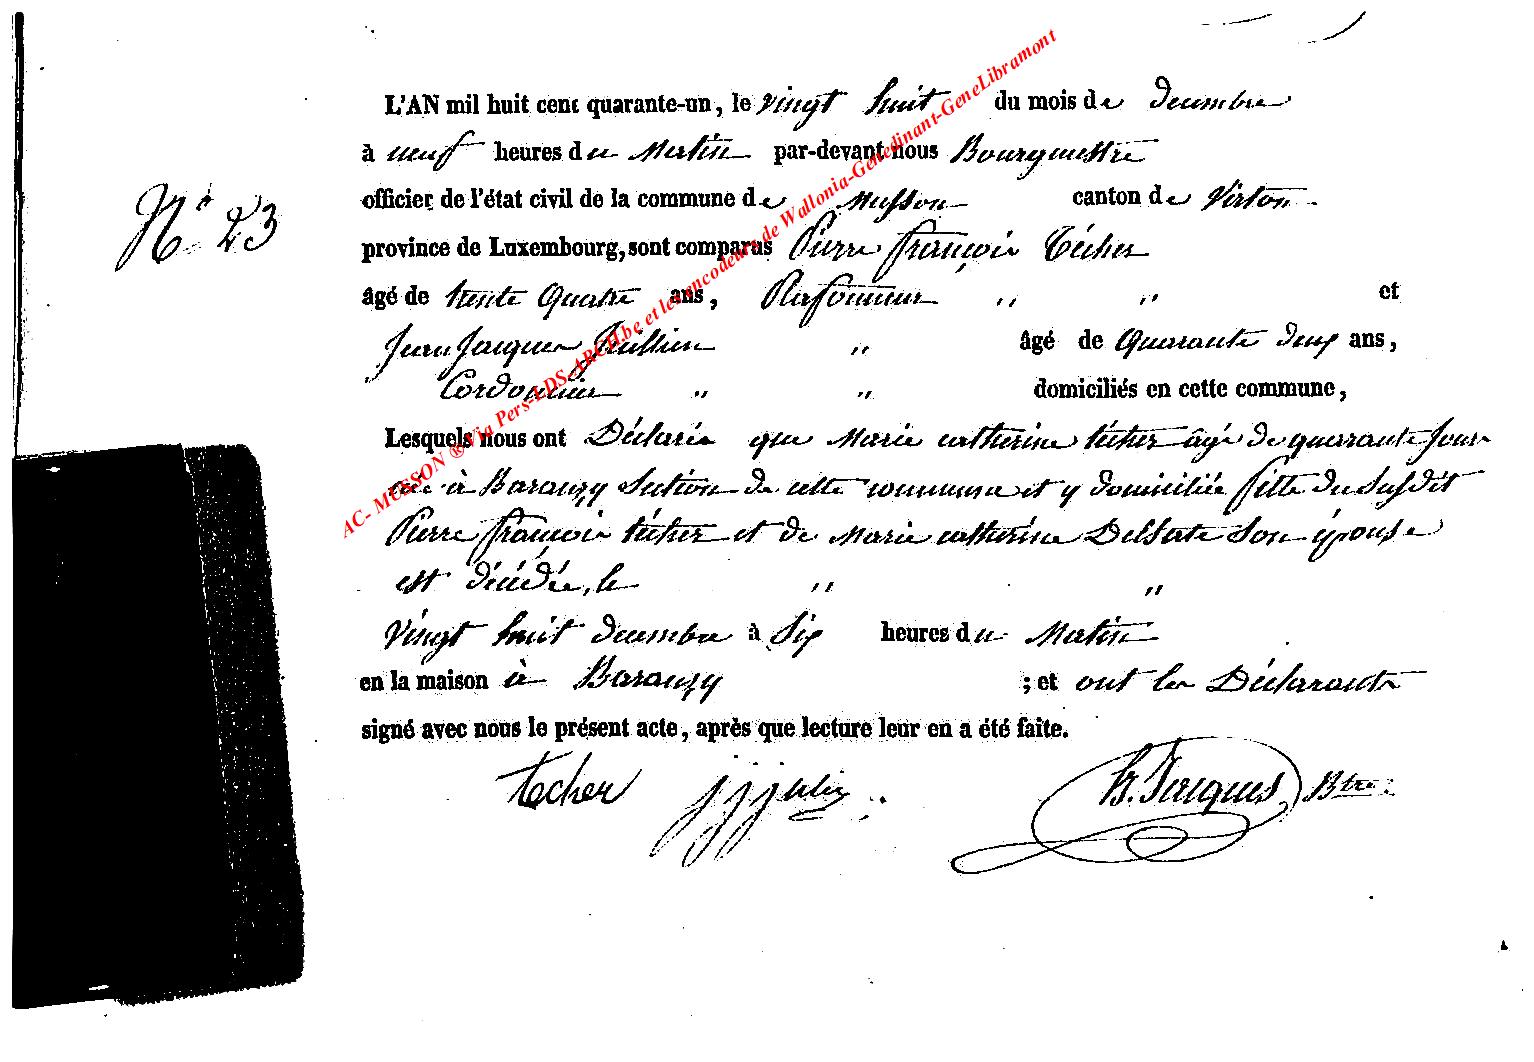 L'AN mil huit cent quarante-un, le vingt huit du mois de decembre
à neuf heures du Matin par-devant nous Bourgmestre
officier de l'état civil de la commune de Musson canton de Virton
N° 23
province de Luxembourg, sont comparus Pierre françois Técher
âgé de trente Quatre ans, " " et
Jean Jacques Jullien " âgé de Quarante deux ans,
" Cordonnier " " domiciliés en cette commune,
Lesquels nous ont Déclarés que Marie catherine técher âgé de quarante jour
née à Baranzy Section de cette commune et y domiciliée fille du Susdit
Pierre françois técher et de Marie catherine Delsate Son épouse
est décédée, le " "
Vingt huit decembre à Six heures du Matin
en la maison à Baranzy ; et ont les Déclarants
signé avec nous le présent acte, après que lecture leur en a été faite.
techer jjjulien H. Jacques Btre
AC- MUSSON ® Via Pers-LDS-ARCH.be et les encodeurs de Wallonia-Genedinant-GeneLibramont